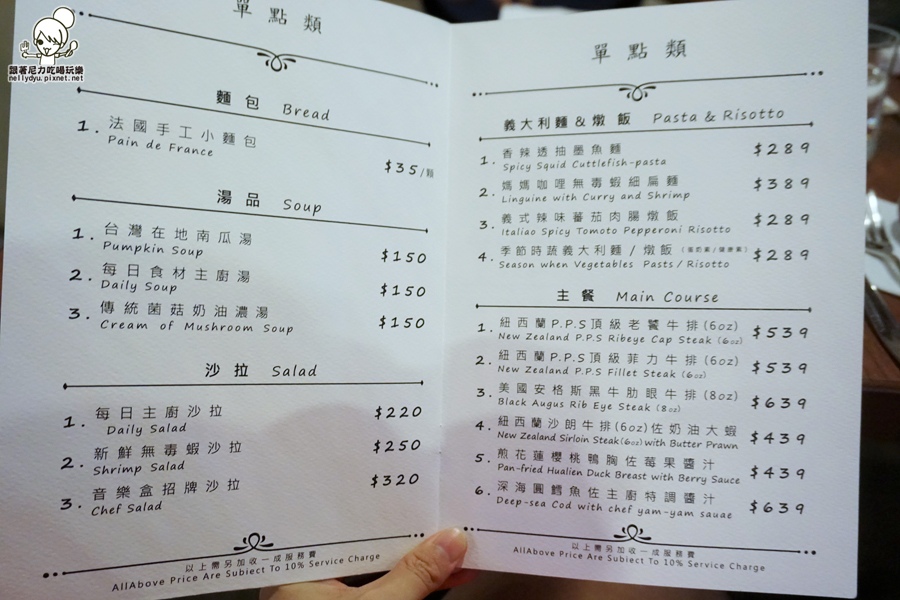 跟著尼力吃喝玩樂
nellydyu.pixnet.net
單點類
麵包 Bread
1. 法國手工小麵包
Pain de France
$35/顆
湯品 Soup
1. 台灣在地南瓜湯
Pumpkin Soup
$150
2. 每日食材主廚湯
Daily Soup
$150
3. 傳統菌菇奶油濃湯
Cream of Mushroom Soup
$150
沙拉 Salad
1. 每日主廚沙拉
Daily Salad
$220
2. 新鮮無毒蝦沙拉
Shrimp Salad
$250
3. 音樂盒招牌沙拉
Chef Salad
$320
以上需另加收一成服務費
AllAbove Price Are Subiect To 10% Service Charge
單點類
義大利麵&燉飯 Pasta & Risotto
1. 香辣透抽墨魚麵 $289
Spicy Squid Cuttlefish-pasta
2. 媽媽咖哩無毒蝦細扁麵 $389
Linguine with Curry and Shrimp
3. 義式辣味蕃茄肉腸燉飯 $289
Italiao Spicy Tomato Pepperoni Risotto
4. 季節時蔬義大利麵/燉飯 (蛋奶素/健康素) $289
Season when Vegetables Pasts/Risotto
主餐 Main Course
1. 紐西蘭P.P.S頂級老饕牛排(6oz) $539
New Zealand P.P.S Ribeye Cap Steak (6oz)
2. 紐西蘭P.P.S頂級菲力牛排(6oz) $539
New Zealand P.P.S Fillet Steak (6oz)
3. 美國安格斯黑牛肋眼牛排(8oz) $639
Black Augus Rib Eye Steak (8oz)
4. 紐西蘭沙朗牛排(6oz)佐奶油大蝦 $439
New Zealand Sirloin Steak(6oz) with Butter Prawn
5. 煎花蓮櫻桃鴨胸佐莓果醬汁 $439
Pan-fried Hualien Duck Breast with Berry Sauce
6. 深海圓鱈魚佐主廚特調醬汁 $639
Deep-sea Cod with chef yam-yam sauae
以上需另加收一成服務費
AllAbove Price Are Subiect To 10% Service Charge